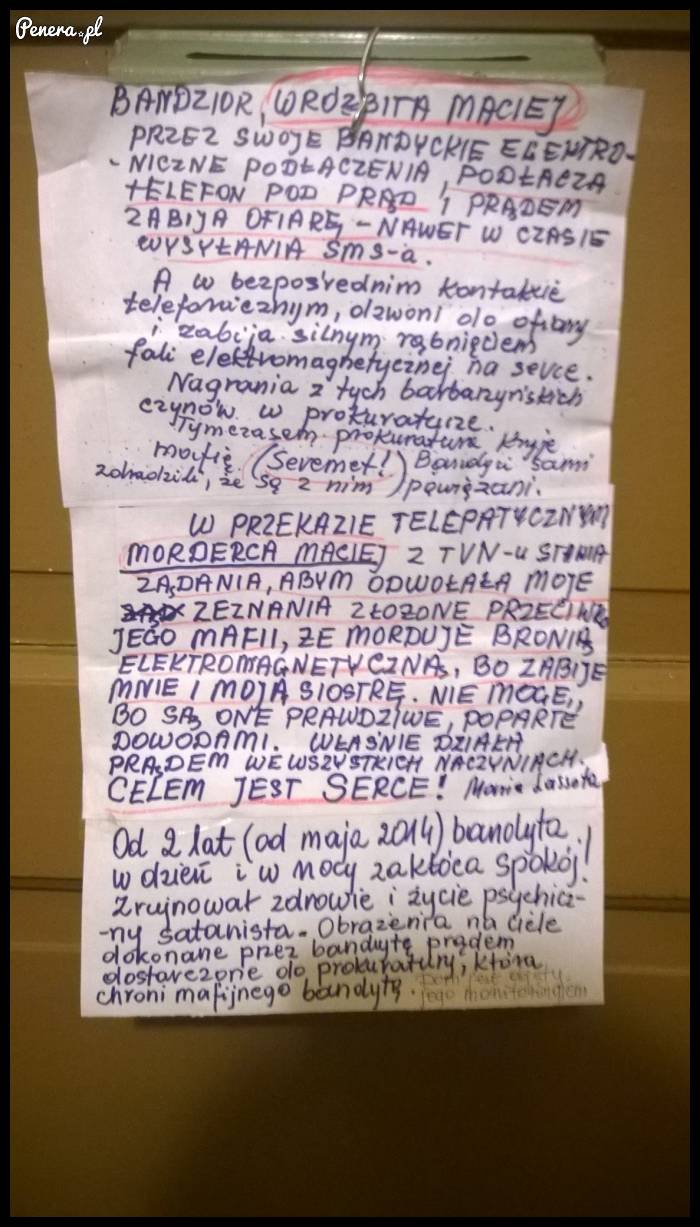 Penera.pl
BANDZIOR, WRÓŻBITA MACIEJ
PRZEZ SWOJE BANDYCKIE ELEKTRO-
-NICZNE PODŁĄCZENIA, PODŁĄCZA
TELEFON POD PRĄD I PRĄDEM
ZABIJA OFIARĘ, - NAWET W CZASIE
WYSYŁANIA SMS-a.
A w bezpośrednim kontakcie
telefonicznym, dzwoni do ofiary
i zabija silnym rąbnięciem
fali elektromagnetycznej na serce.
Nagrania z tych barbarzyńskich
czynów w prokuraturze.
Tymczasem prokuratura kryje
mafię (Seremet!) Bandyci sami
zdradzili, że są z nim powiązani.
W PRZEKAZIE TELEPATYCZNYM
MORDERCA MACIEJ Z TVN-u STAWIA
ŻĄDANIA, ABYM ODWOŁAŁA MOJE
ZEZNANIA ZŁOŻONE PRZECIWKO
JEGO MAFII, ŻE MORDUJE BRONIĄ
ELEKTROMAGNETYCZNĄ, BO ZABIJE
MNIE I MOJĄ SIOSTRĘ. NIE MOGĘ,
BO SĄ ONE PRAWDZIWE, POPARTE
DOWODAMI. WŁAŚNIE DZIAŁA
PRĄDEM WE WSZYSTKICH NACZYNIACH.
CELEM JEST SERCE! Maria Lassota
Od 2 lat (od maja 2014) bandyta
w dzień i w nocy zakłóca spokój!
Zrujnował zdrowie i życie psychicz-
-ny satanista. Obrażenia na ciele
dokonane przez bandytę prądem
dostarczone do prokuratury, która
chroni mafijnego bandytę.
jego monitoringiem